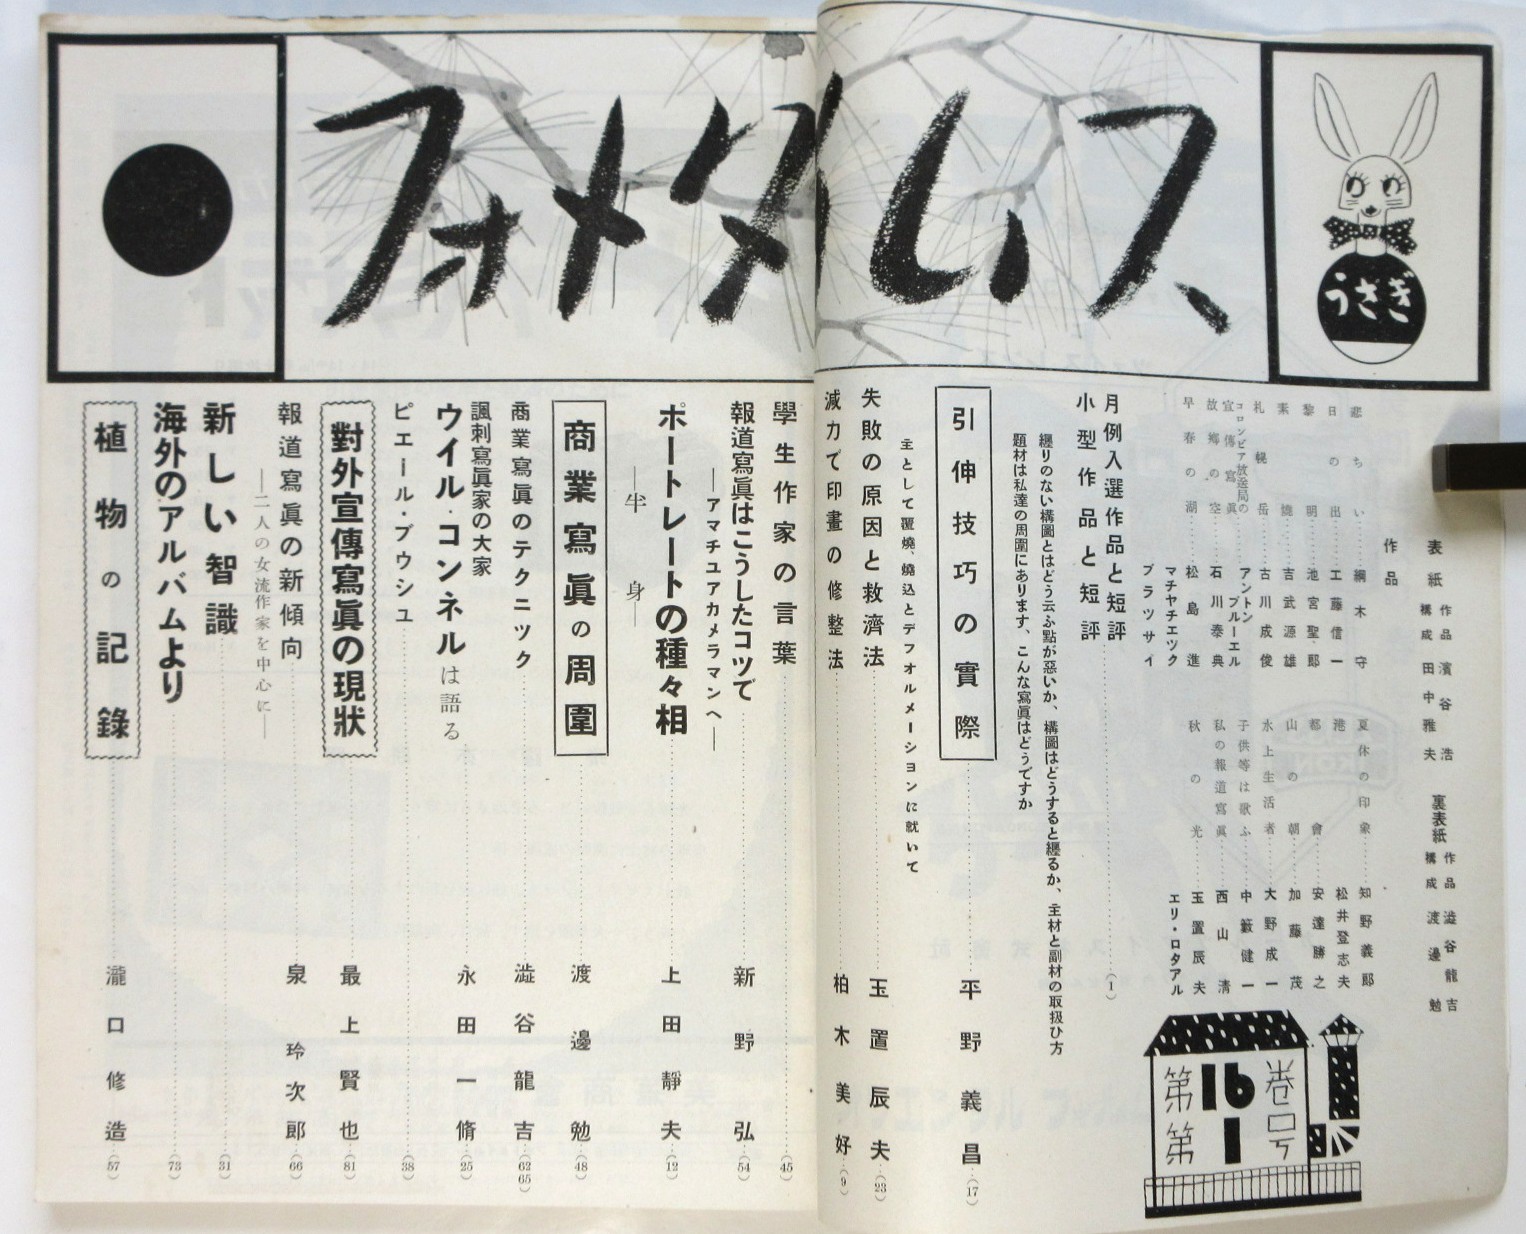 フォトタイムス
うさぎ
表紙
作品 濱谷浩
構成 田中雅夫
裏表紙
作品 澁谷龍吉
構成 渡邊勉
作品
悲ちい 綱木守
日の出 工藤信一
黎明 池宮聖郎
素燒 吉武源雄
札幌岳 古川成俊
コロンビア放送局の
宣傳寫眞 アントン・ブルーエル
故郷の空 石川泰典
早春の湖 松島進
マチヤチエツク
ブラツサイ
夏休の印象 知野義郎
港 松井登志夫
都會 安達勝之
山の朝 加藤茂
水上生活者 大野成一
子供等は歌ふ 中籔健一
私の報道寫眞 西山清
秋の光 玉置辰夫
エリ・ロタアル
第16巻
第1号
月例入選作品と短評
小型作品と短評 (1)
纒りのない構圖とはどう云ふ點が惡いか、構圖はどうすると纒るか、主材と副材の取扱ひ方
題材は私達の周圍にあります、こんな寫眞はどうですか
引伸技巧の實際 平野義昌 (17)
主として覆燒、燒込とデフオルメーシヨンに就いて
失敗の原因と救濟法 玉置辰夫 (23)
減力で印畫の修整法 柏木美好 (9)
學生作家の言葉 (45)
報道寫眞はこうしたコツで 新野弘 (54)
―アマチユアカメラマンへ―
ポートレートの種々相 上田靜夫 (12)
―半身―
商業寫眞の周圍 渡邊勉 (48)
商業寫眞のテクニツク 澁谷龍吉 (62 65)
諷刺寫眞家の大家
ウイル・コンネルは語る 永田一脩 (25)
ピエール・ブウシユ (38)
對外宣傳寫眞の現狀 最上賢也 (81)
報道寫眞の新傾向 泉玲次郎 (66)
―二人の女流作家を中心に―
新しい智識 (31)
海外のアルバムより (73)
植物の記錄 瀧口修造 (57)